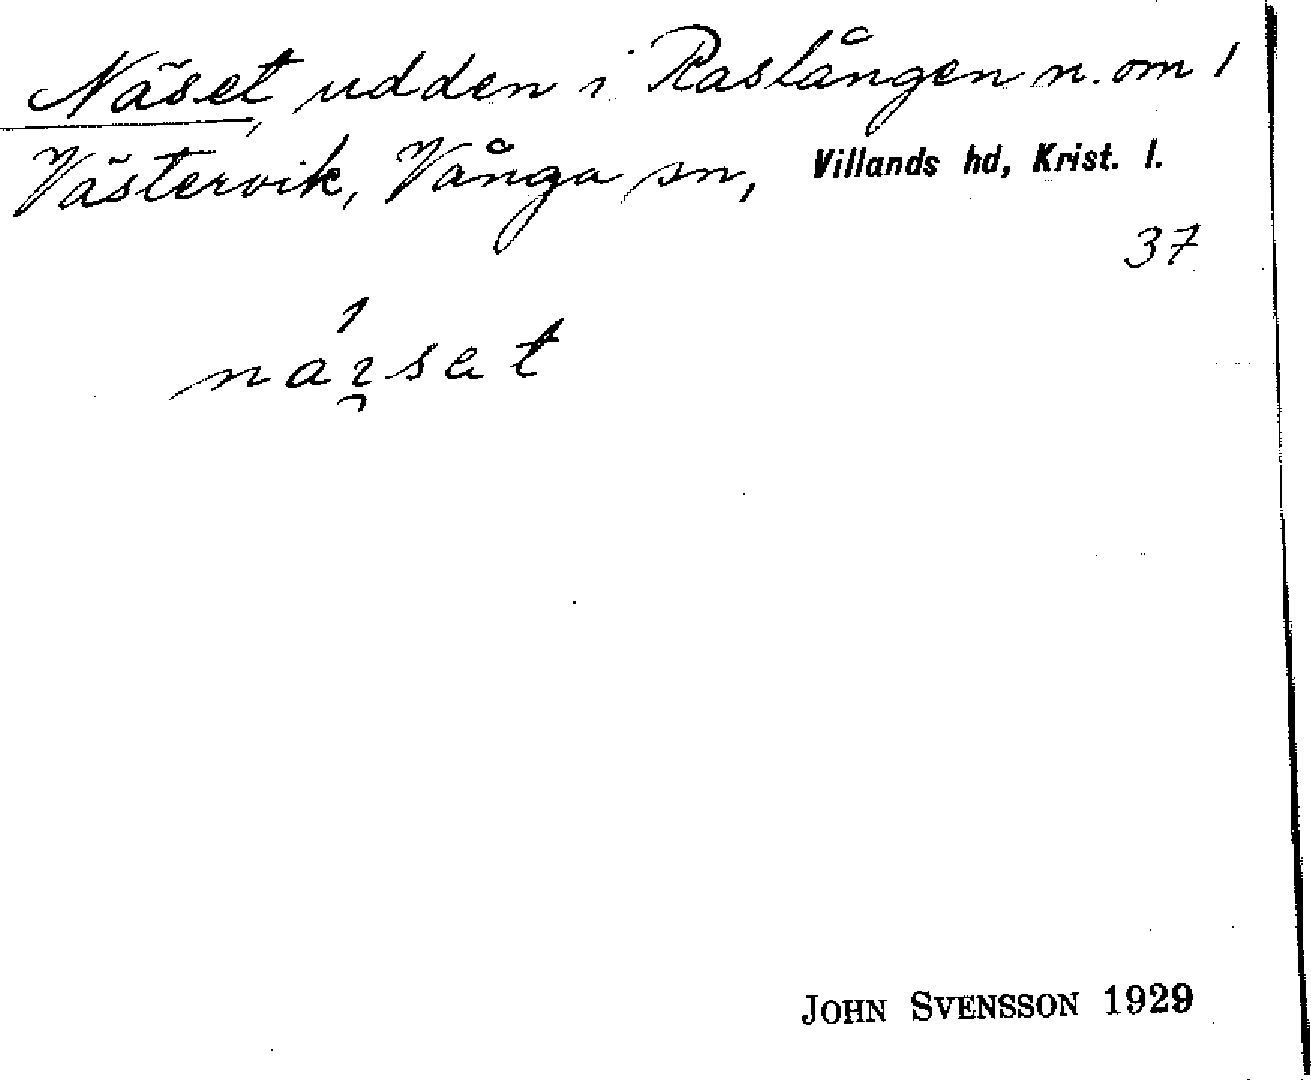 Näset, udden i Raslången n. om 1
Västervik, Vånga sn, Villands hd, Krist. l.
37
JOHN SVENSSON 1929